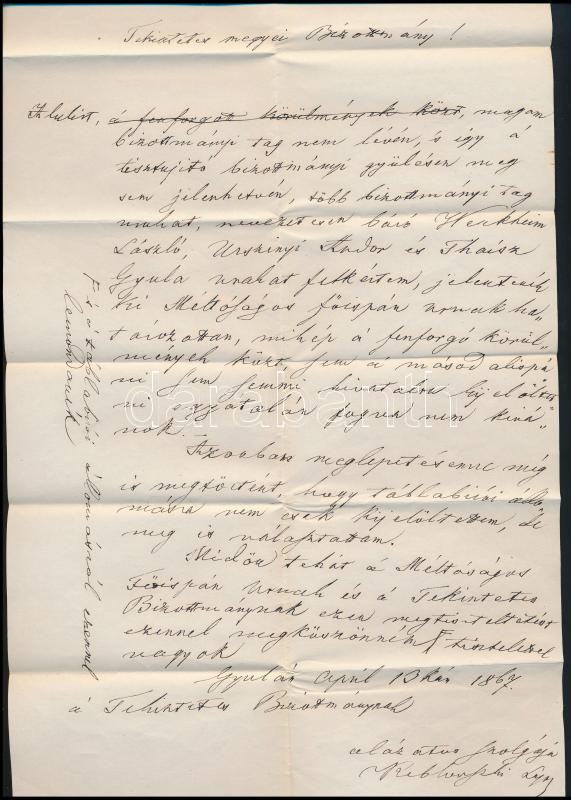 Tekintetes megyei Bizottmány!
Alulirt, á fenforgók körülmények közt, magam
bizottmányi tag nem lévén, s így á
tisztujító bizottmányi gyülésen meg
sem jelenhetvén, több bizottmányi tag
urakat, nevezetesen báró Wenkheim
László, Urszinyi Andor és Thaisz
Gyula urakat felkértem, jelentenék
ki Méltóságos főispán urnak ha-
tározottan, mikép á fenforgó körül-
mények közt, sem á másod alispá
ni sem semmi hivatalra kijelöltet
ni egyátalán fogva nem kivá-
nok.
Azonban meglepetésemre még
is megtörtént, hogy táblabirói állo
másra nem csak kijelöltettem, de
meg is választattam.
Midőn tehát á Méltóságos
Főispán Urnak és á Tekintetes
Bizottmánynak ezen megtiszteltetést
ezennel megköszönném tisztelettel
vagyok
Gyulán April 13kán 1867.
á Tekintetes Bizottmánynak
alázatos szolgája
És á táblabirói állomásról ezennel
lemondanék
darabanth